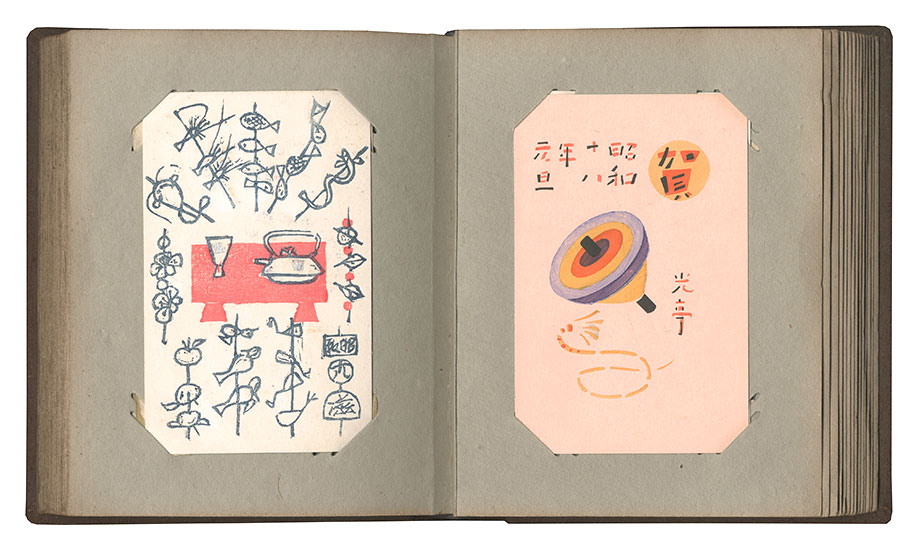 昭和
九
賀
昭和
十八
年
元旦
光亭